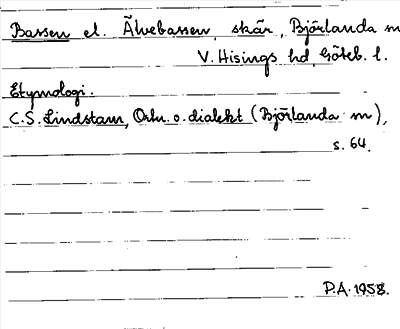 Bassen el. Älvebassen, skär, Björlanda sn
V. Hisings hd, Göteb. l.
Etymologi.
C.S. Lindstam, Ortn. o. dialekt (Björlanda sn),
s. 64.
P.A. 1958.